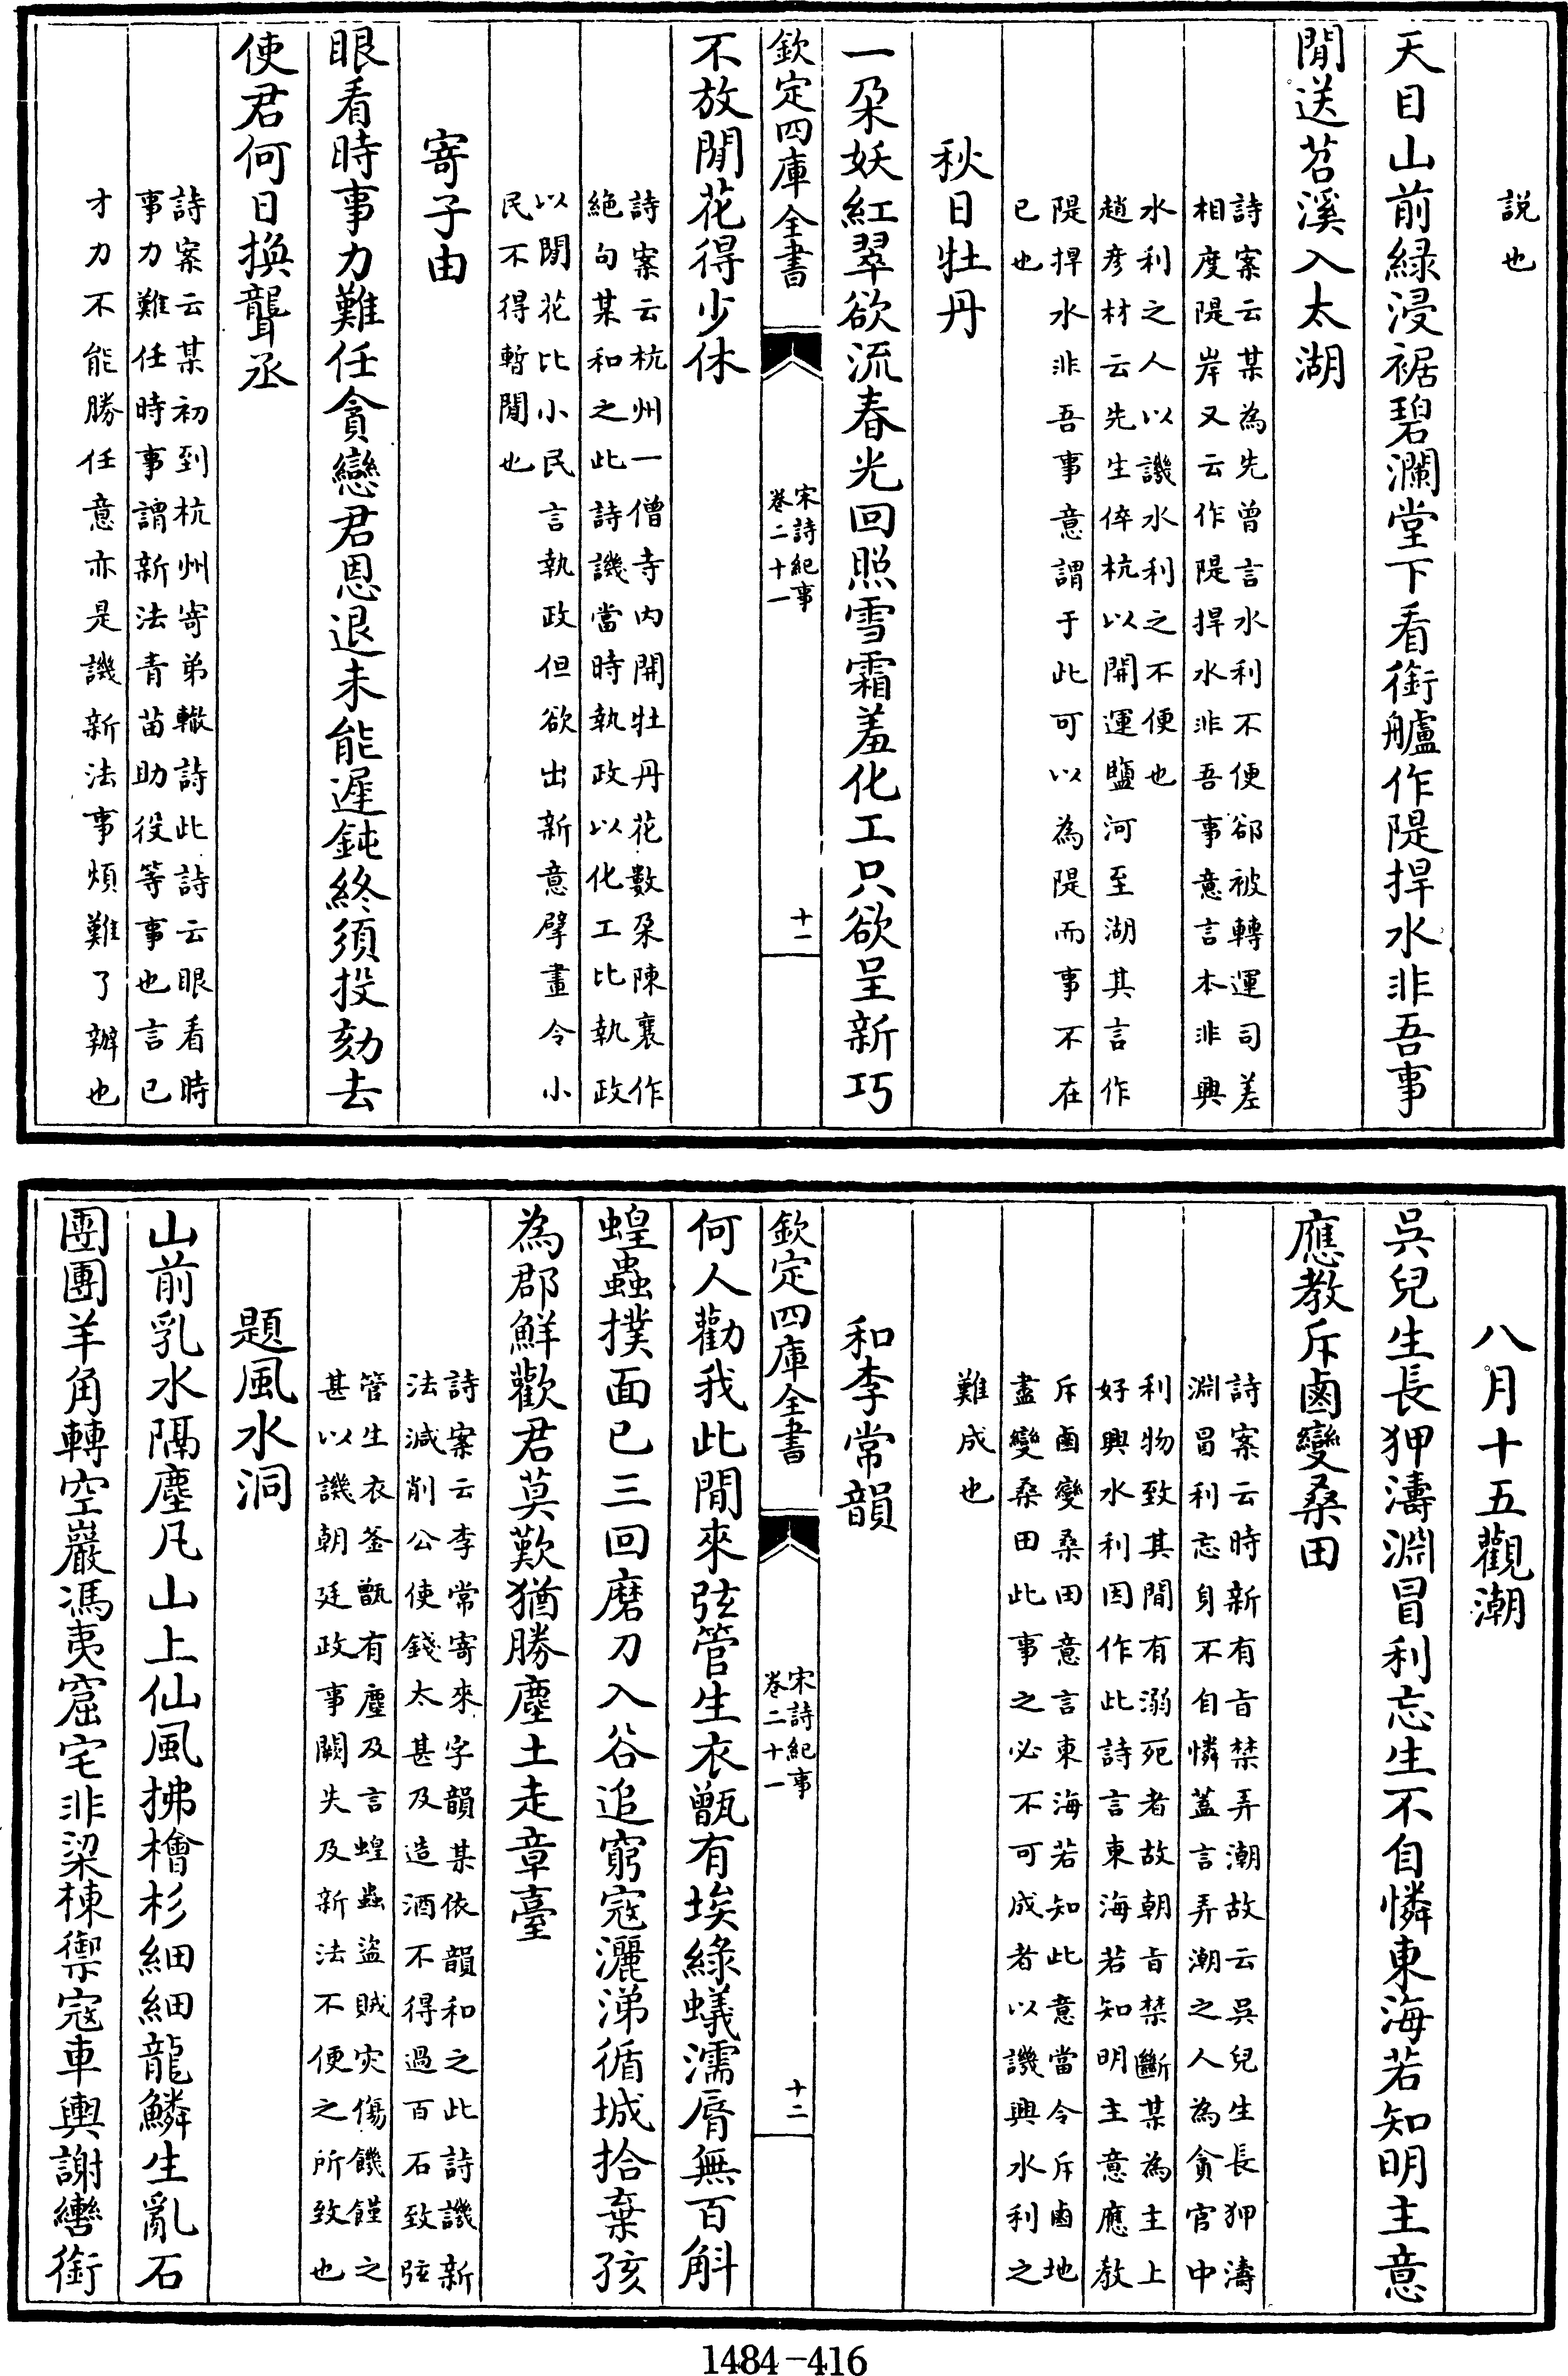 說也
天目山前緑浸裾碧瀾堂下看銜艫作隄捍水非吾事
閒送苕溪入太湖
詩案云某為先曽言水利不便郤被轉運司差
相度隄岸又云作隄捍水非吾事意言本非興
水利之人以譏水利之不便也
趙彦材云先生倅杭以開運鹽河至湖其言作
隄捍水非吾事意謂于此可以為隄而事不在
已也
秋日牡丹
一朶妖紅翠欲流春光回照雪霜羞化工只欲呈新巧
欽定四庫全書
宋詩紀事
卷二十一
十一
不放閒花得少休
詩案云杭州一僧寺内開牡丹花數朶陳襄作
絶句某和之此詩譏當時執政以化工比執政
以閒花比小民言執政但欲出新意擘畫令小
民不得暫閒也
寄子由
眼看時事力難任貪戀君恩退未能遲鈍終須投劾去
使君何日換聾丞
詩案云某初到杭州寄弟轍詩此詩云眼看時
事力難任時事謂新法青苗助役等事也言已
才力不能勝任意亦是譏新法事煩難了辦也
八月十五觀潮
吳兒生長狎濤淵冒利忘生不自憐東海若知明主意
應教斥鹵變桑田
詩案云時新有旨禁弄潮故云吳兒生長狎濤
淵冒利忘身不自憐蓋言弄潮之人為貪官中
利物致其間有溺死者故朝旨禁斷某為主上
好興水利因作此詩言東海若知明主意應教
斥鹵變桑田意言東海若知此意當令斥鹵地
盡變桑田此事之必不可成者以譏興水利之
難成也
和李常韻
欽定四庫全書
宋詩紀事
卷二十一
十二
何人勸我此閒來弦管生衣甑有埃綠蟻濡脣無百斛
蝗蟲撲面已三回磨刀入谷追窮寇灑涕循城拾棄孩
為郡鮮歡君莫歎猶勝塵土走章臺
詩案云李常寄來字韻某依韻和之此詩譏新
法減削公使錢太甚及造酒不得過百石致弦
管生衣釜甑有塵及言蝗蟲盜賊災傷饑饉之
甚以譏朝廷政事闕失及新法不便之所致也
題風水洞
山前乳水隔塵凡山上仙風拂檜杉細細龍鱗生亂石
團團羊角轉空巖馮夷窟宅非梁棟禦寇車輿謝轡銜
1484-416